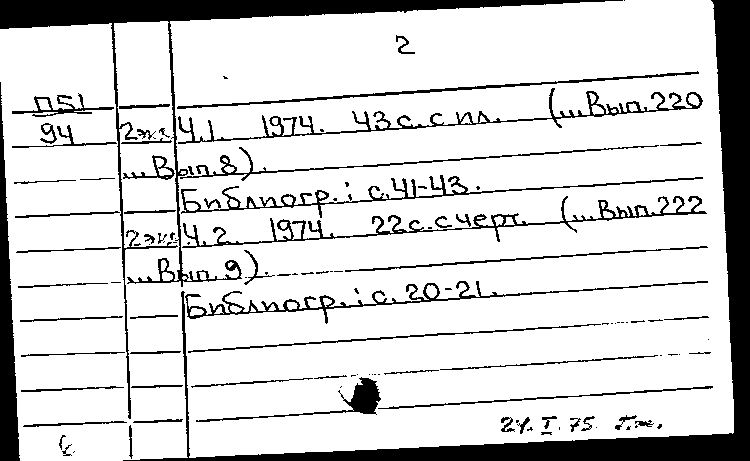 2
П51
94 2экз Ч.1. 1974. 43 с. с ил. (...Вып.220
...Вып.8).
Библиогр.: с.41-43.
2экз Ч.2. 1974. 22 с. с черт. (...Вып.222
...Вып.9).
Библиогр.: с. 20-21.
24.I.75